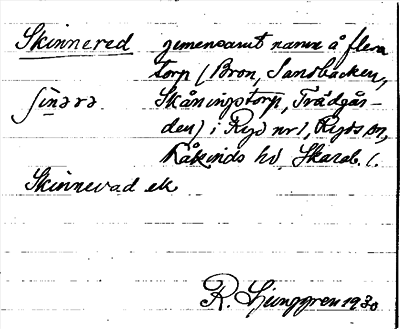 Skinnered gemensamt namn å flera
torp (Bron, Sandbacken,
ʃin̄ərə. Skåningstorp, Trädgår-
den) i Ryd nr 1, Ryds sn,
Kåkinds hd, Skarab. l.
Skinnerad ek
R. Ljunggren 1930